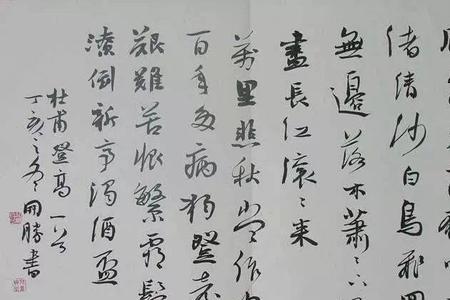 渚清沙白鳥飛回
無邊落木蕭々下不
盡長江滾々來
萬里悲秋常作
百年多病獨登臺
艱難苦恨繁霜鬢
潦倒新亭濁酒盃
杜甫登高一首
丁亥之冬勝書